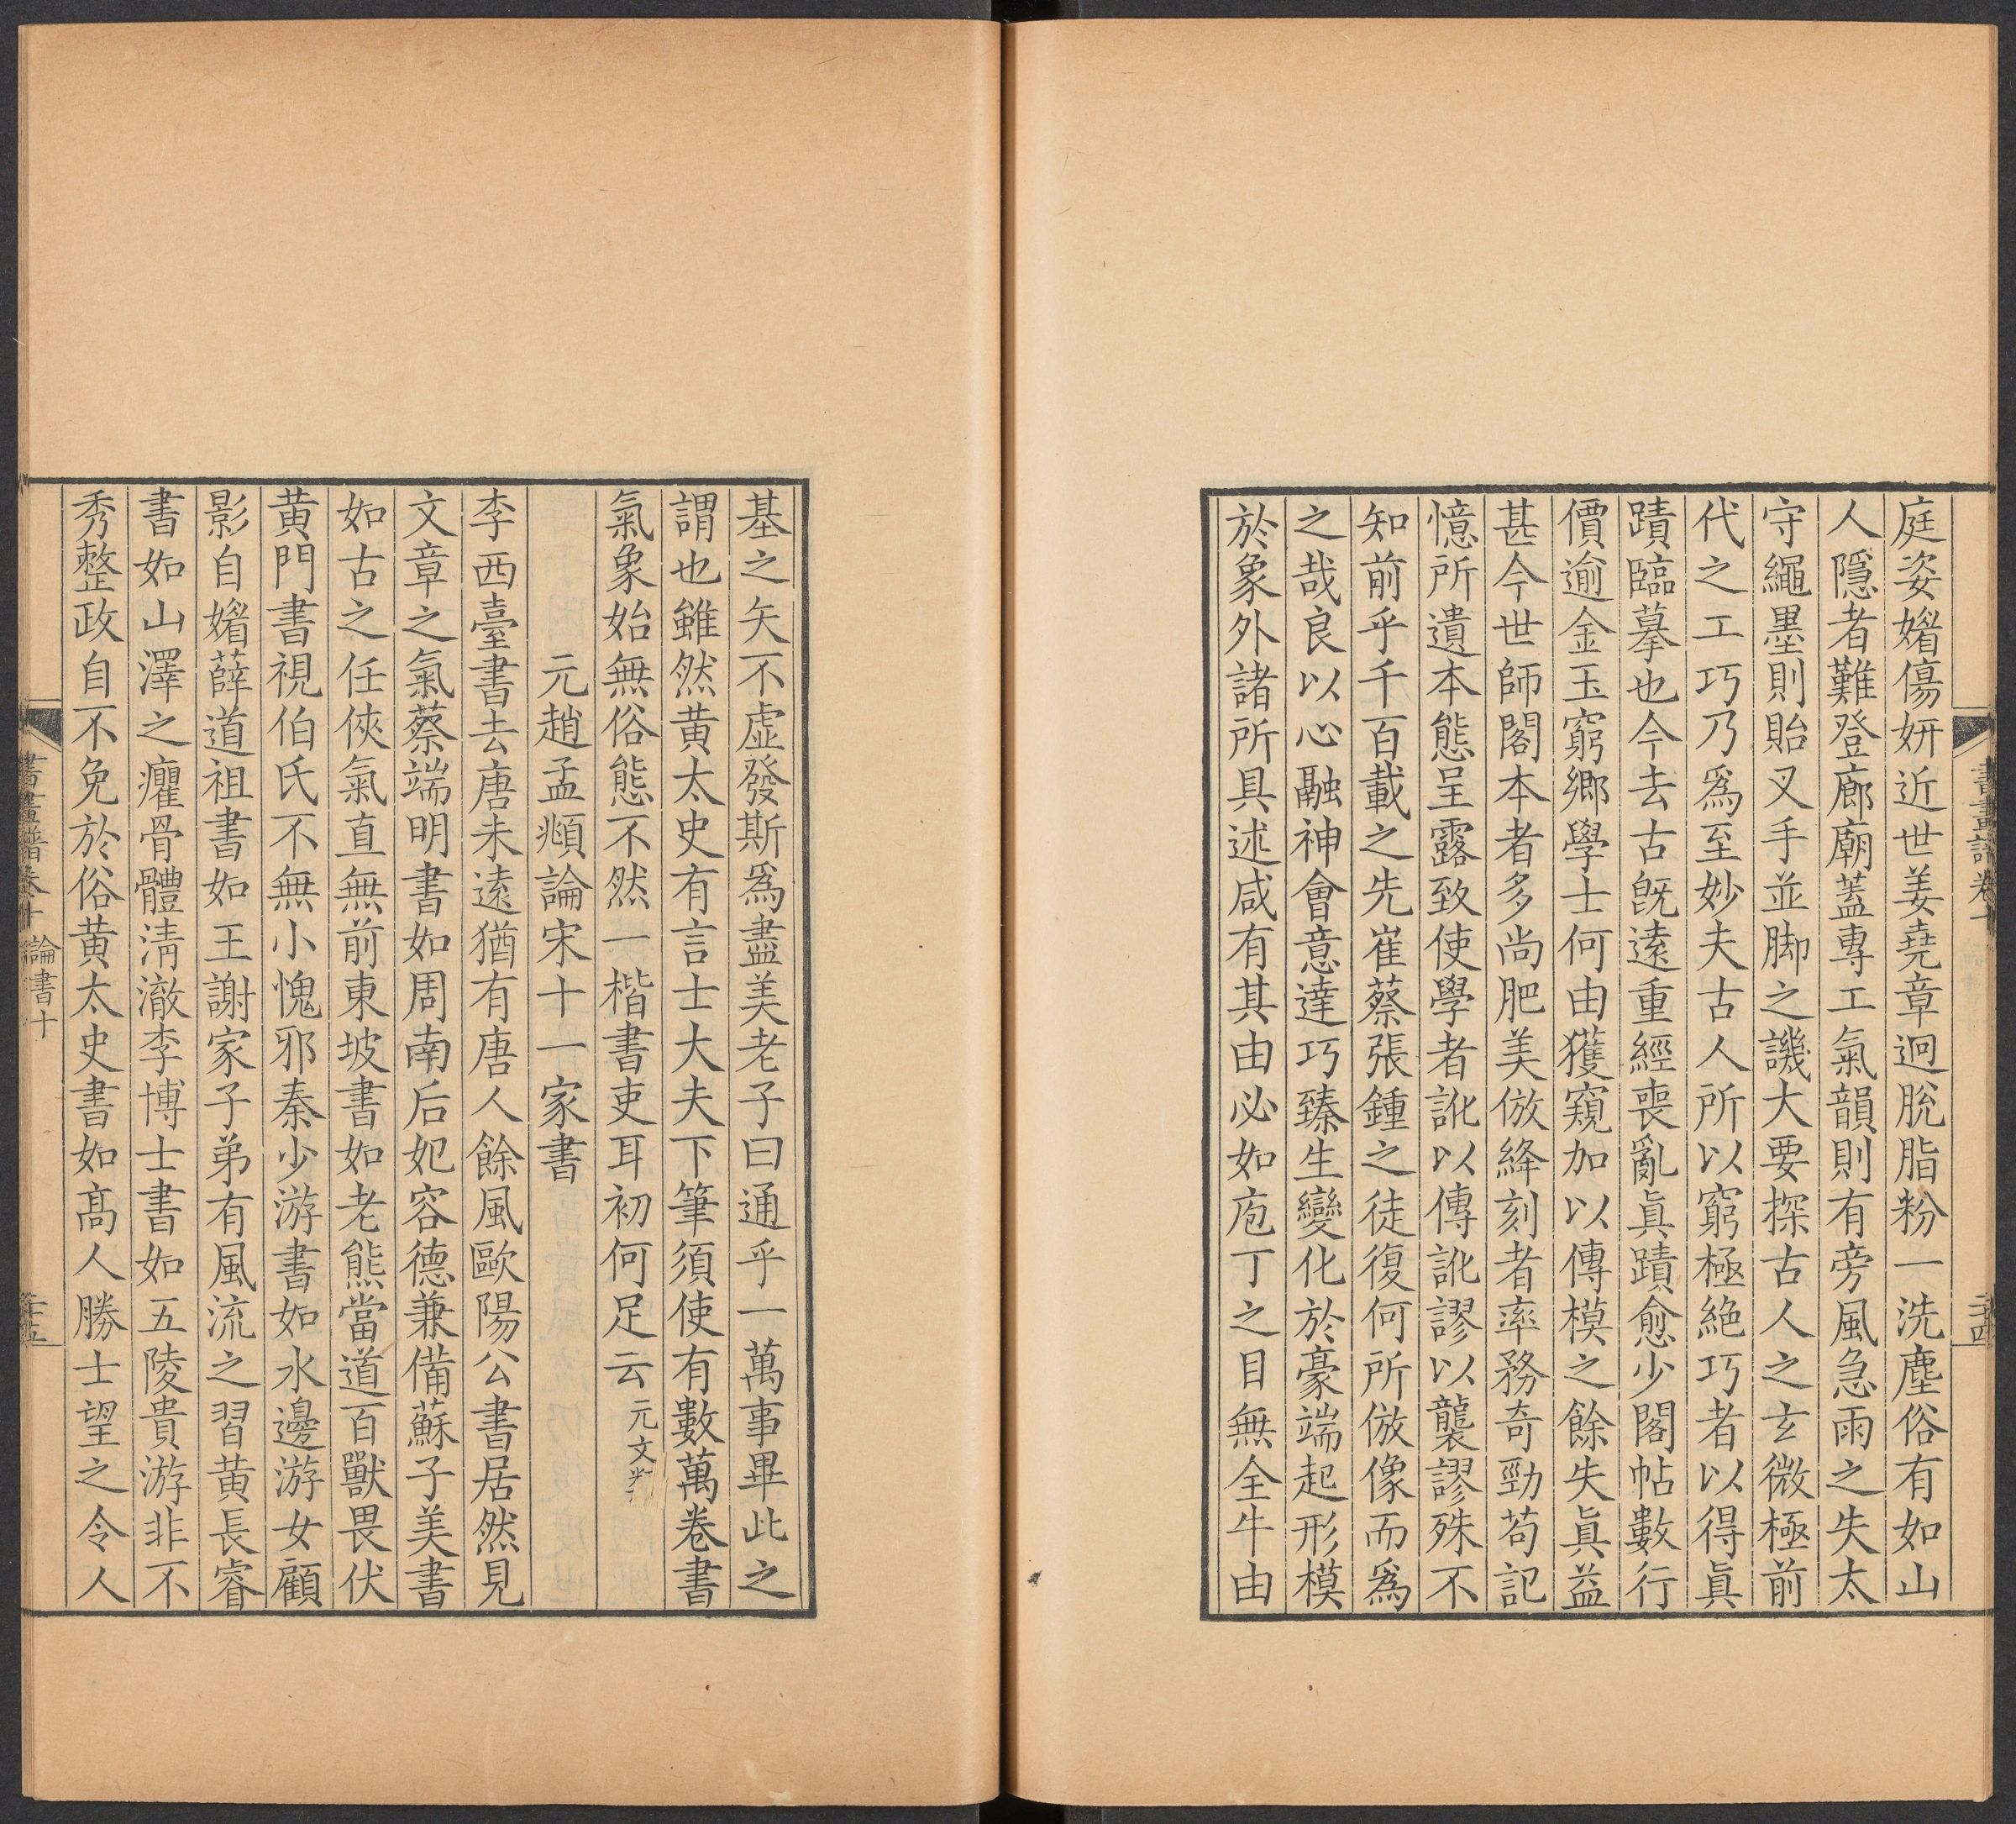 庭姿媚傷妍近世姜堯章迥脫脂粉一洗塵俗有如山
人隱者難登廊廟蓋專工氣韻則有旁風急雨之失太
守繩墨則貽叉手並脚之譏大要探古人之玄微極前
代之工巧乃爲至妙夫古人所以窮極絶巧者以得眞
蹟臨摹也今去古旣遠重經喪亂眞蹟愈少閣帖數行
價逾金玉窮鄉學士何由獲窺加以傳模之餘失眞益
甚今世師閣本者多尚肥美倣絳刻者率務奇勁苟記
憶所遺本態呈露致使學者訛以傳訛謬以襲謬殊不
知前乎千百載之先崔蔡張鍾之徒復何所倣像而爲
之哉良以心融神會意達巧臻生變化於豪端起形模
於象外諸所具述咸有其由必如庖丁之目無全牛由
書畫譜卷十
二十四
基之矢不虛發斯爲盡美老子曰通乎一萬事畢此之
謂也雖然黄太史有言士大夫下筆須使有數萬卷書
氣象始無俗態不然一楷書吏耳初何足云元文類
元趙孟頫論宋十一家書
李西臺書去唐未遠猶有唐人餘風歐陽公書居然見
文章之氣蔡端明書如周南后妃容德兼備蘇子美書
如古之任俠氣直無前東坡書如老熊當道百獸畏伏
黄門書視伯氏不無小愧邪秦少游書如水邊游女顧
影自媚薛道祖書如王謝家子弟有風流之習黄長睿
書如山澤之癯骨體清澈李博士書如五陵貴游非不
秀整政自不免於俗黄太史書如高人勝士望之令人
書畫譜卷十 論書十
二十五